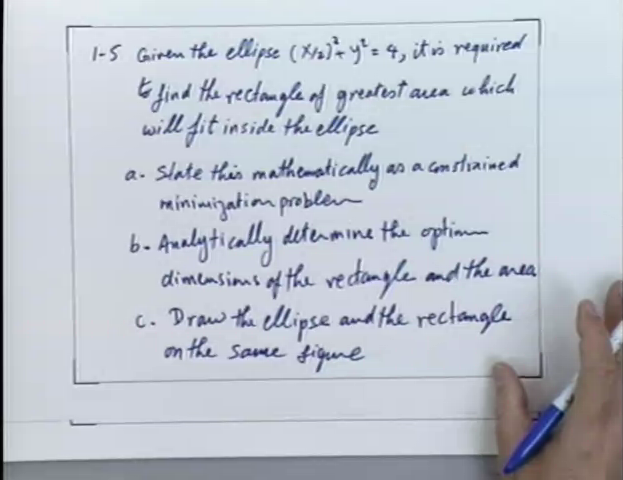 1-5 Given the ellipse (x/2)² + y² = 4, it is required
to find the rectangle of greatest area which
will fit inside the ellipse
a- State this mathematically as a constrained
minimization problem
b- Analytically determine the optimum
dimensions of the rectangle and the area
c. Draw the ellipse and the rectangle
on the same figure